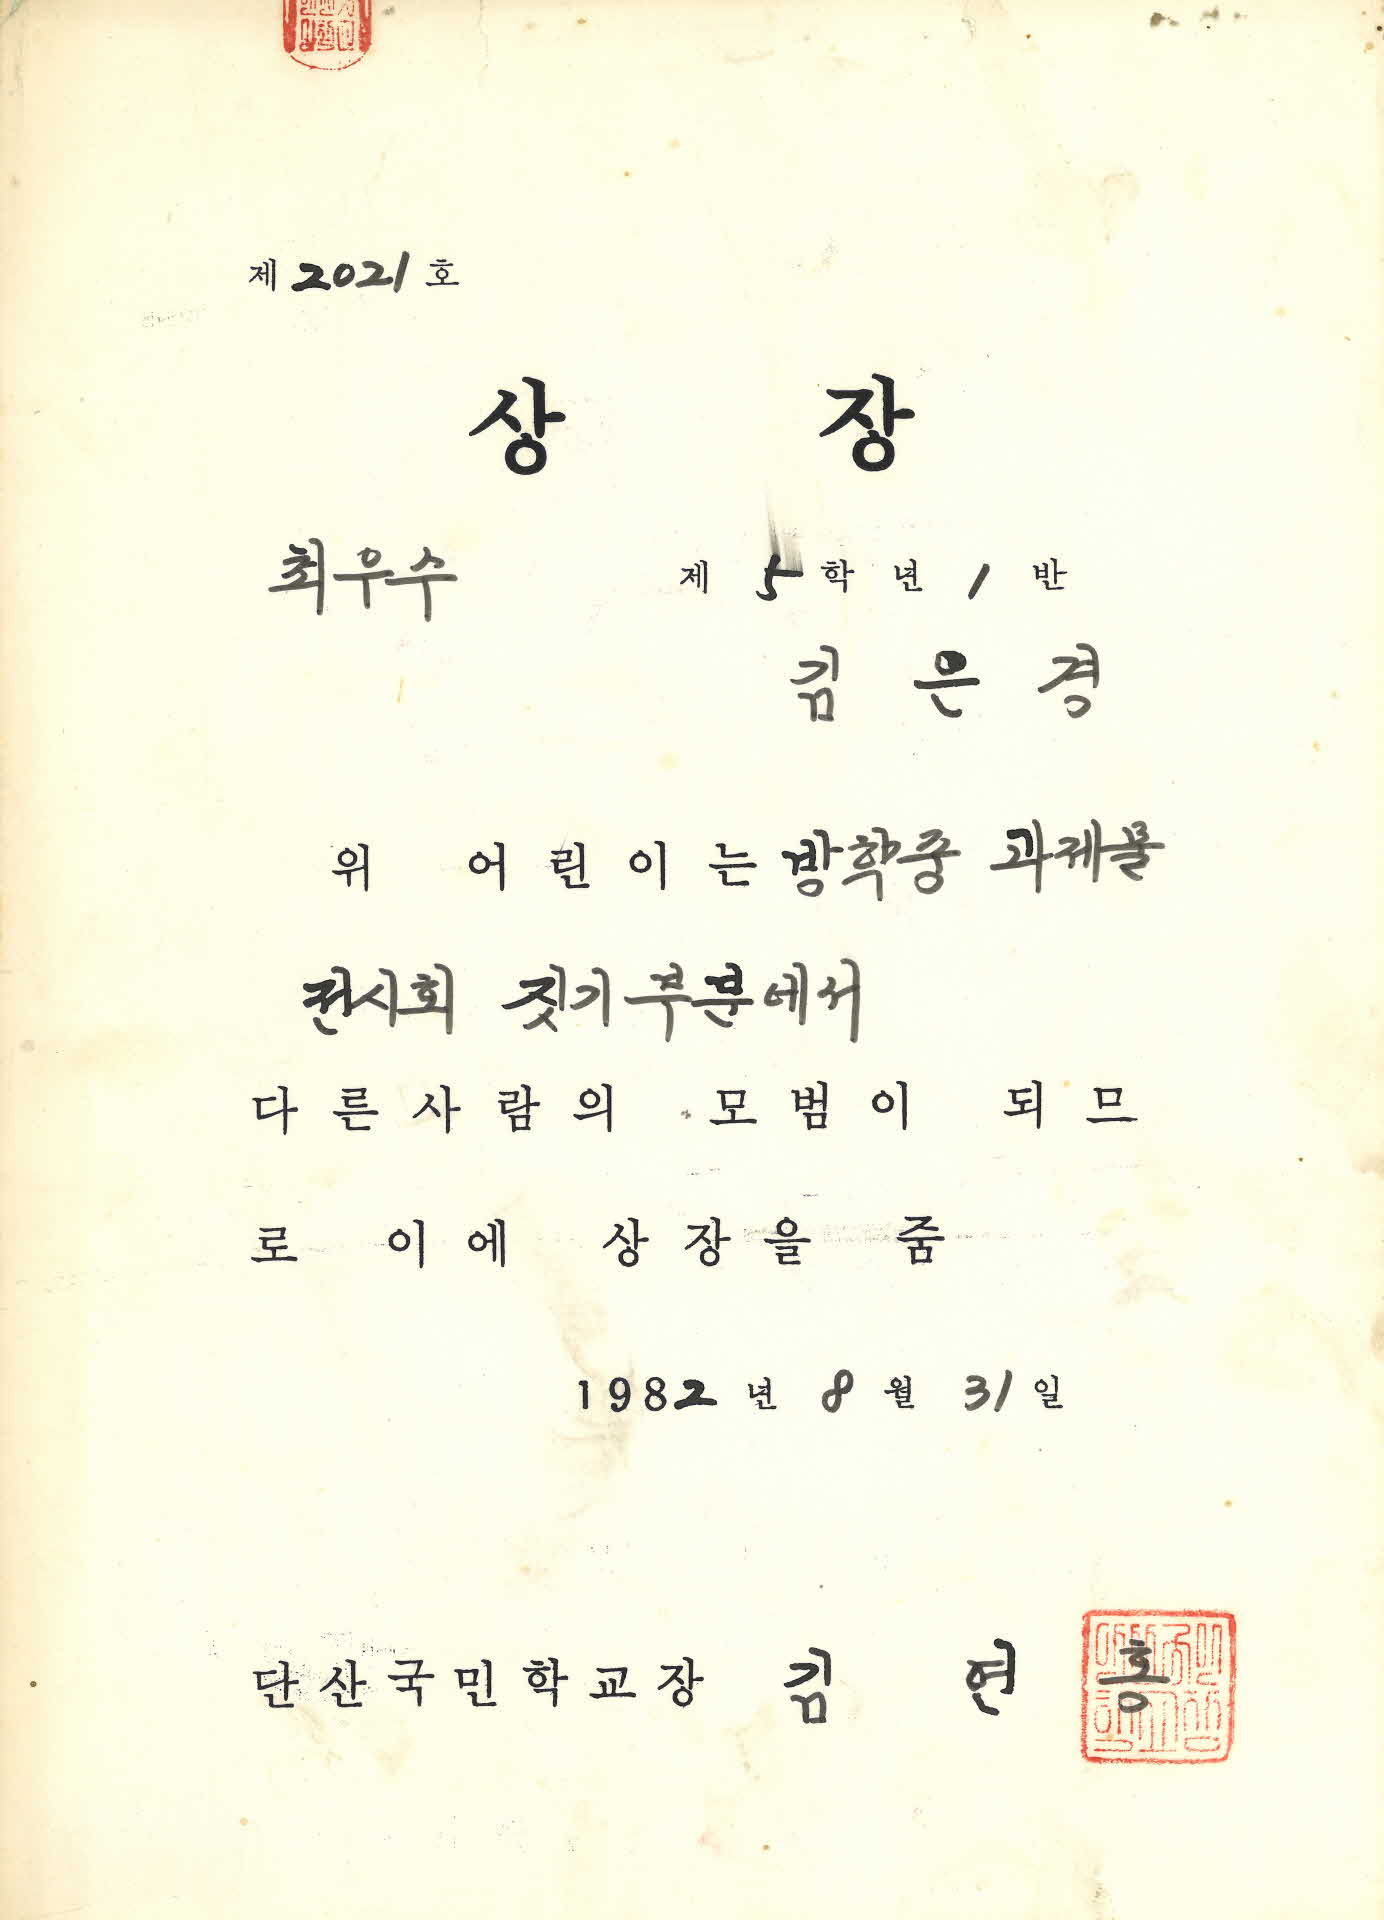 제 2021 호
상 장
최우수 제 5 학 년 1 반
김 은 경
위 어린이는 방학중 과제물
전시회 짓기부분에서
다른사람의 모범이 되므
로 이에 상장을 줌
1982 년 8 월 31 일
단산국민학교장 김 연 홍